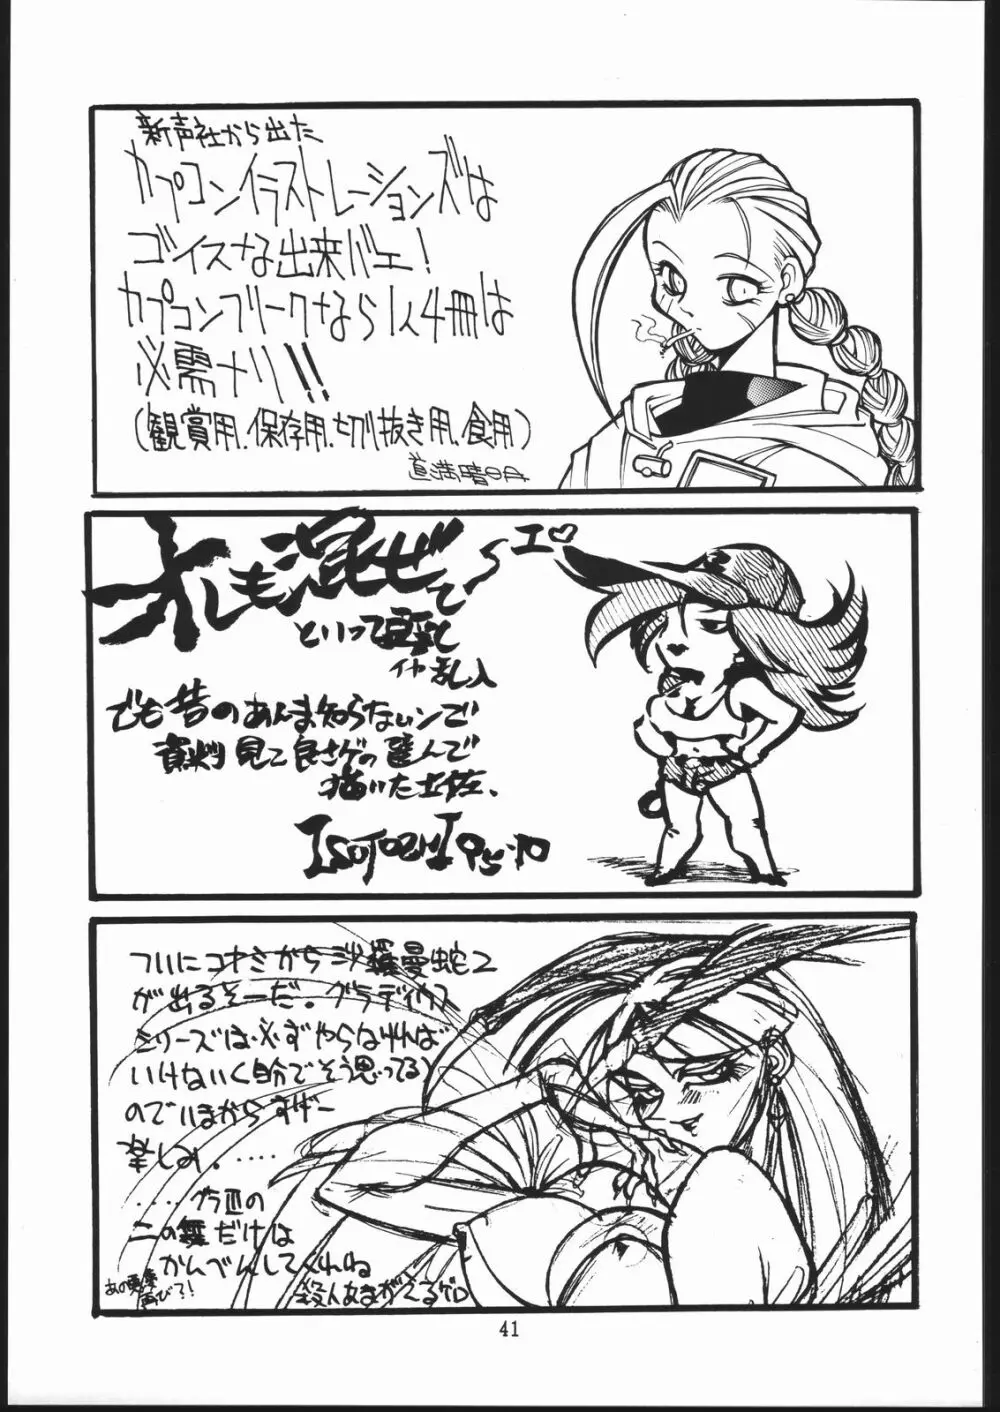 新声社から出た
カプコンイラストレーションズは
ゴイスな出来バエ!
カプコンフリークなら1人4冊は
必需ナリ!!
(観賞用、保存用、切り抜き用、食用)
道満晴明
オレも混ぜて
〜エ♡
といって巨乳と
乱入
でも昔のあんま知らないンで
資料見て良さゲの選んで
描いた土佐、
ついにコナミから沙羅曼蛇2
が出るそーだ。グラディウス
シリーズは必ずやらなければ
いけない(自分でそう思ってる)
のでいまからすげー
楽しみ。‥‥
‥‥グラⅢの
二の舞だけは
かんべんしてくれね
あの悪夢
再び?!
殺人あまがえるゲロ
41